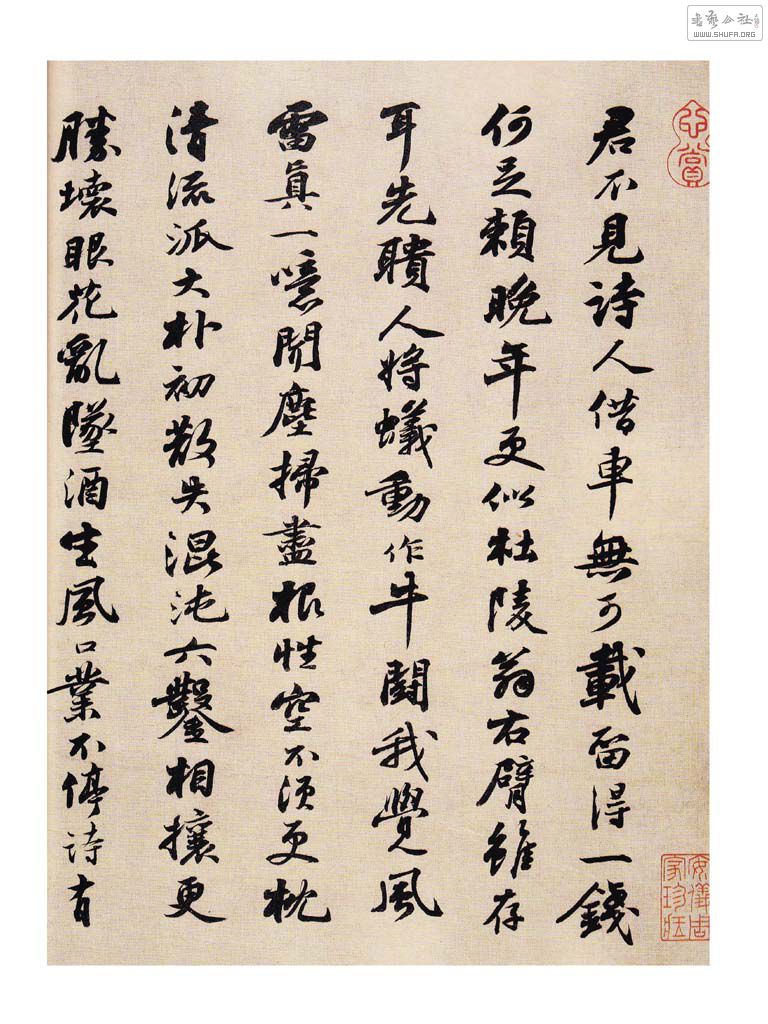 君不見詩人借車無可載留得一錢
何足賴晚年更似杜陵翁右臂雖存
耳先聵人將蟻動作牛鬪我覺風
雷真一噫聞塵掃盡根性空不須更枕
清流派大朴初散失混沌六鑿相攘更
勝壞眼花亂墜酒生風口業不停詩有
書藝公社
WWW.SHUFA.ORG
心賞
安儀周
家珍藏